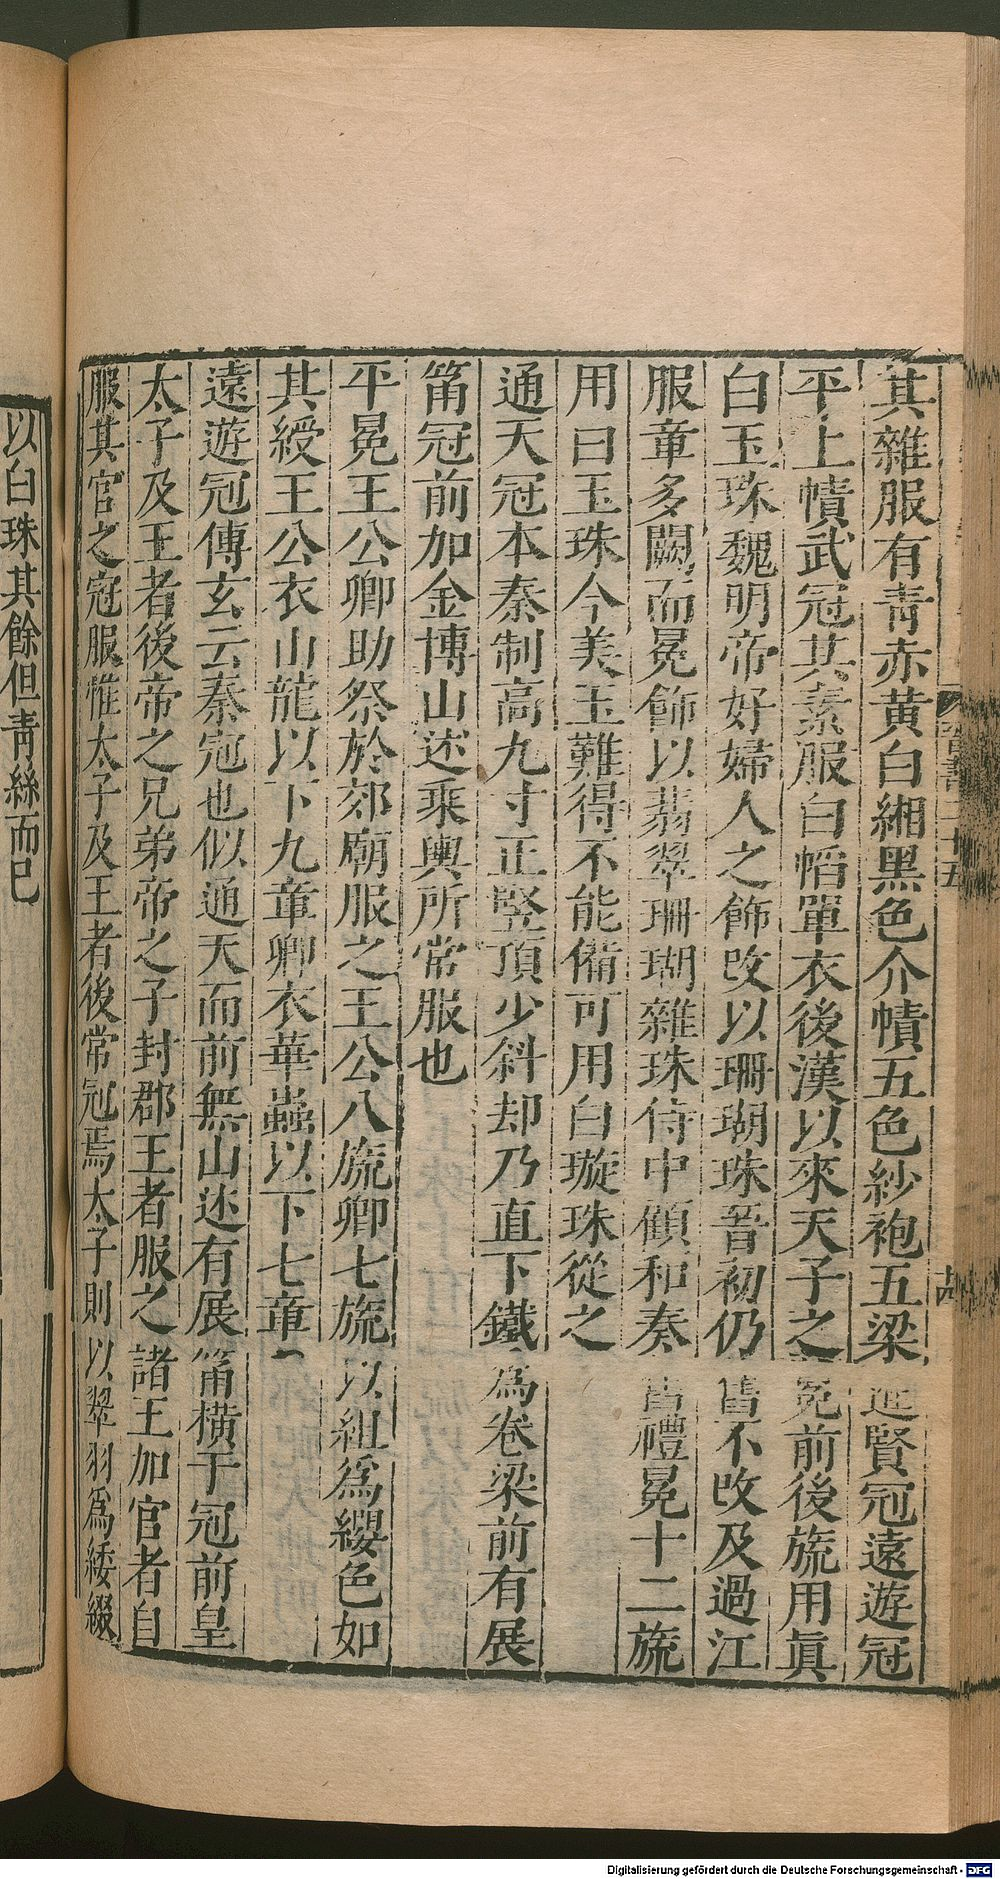 其雜服有青赤黃白緗黑色介幘五色紗袍五梁進賢冠遠遊冠
平上幘武冠其素服白帢單衣後漢以來天子之冕前後旒用真
白玉珠魏明帝好婦人之飾改以珊瑚珠晉初仍舊不改及過江
服章多闕而冕飾以翡翠珊瑚雜珠侍中顧和奏舊禮冕十二旒
用白玉珠今美玉難得不能備可用白璇珠從之
通天冠本秦制高九寸正竪頂少斜却乃直下鐵為卷梁前有展
筩冠前加金博山述乘輿所常服也
平冕王公卿助祭於郊廟服之王公八旒卿七旒以組為纓色如
其綬王公衣山龍以下九章卿衣華蟲以下七章
遠遊冠傅玄云秦冠也似通天而前無山述有展筩橫于冠前皇
太子及王者後帝之兄弟帝之子封郡王者服之諸王加官者自
服其官之冠服惟太子及王者後常冠焉太子則以翠羽為緌綴
以白珠其餘但青絲而已
晉書二十五
Digitalisierung gefördert durch die Deutsche Forschungsgemeinschaft - DFG